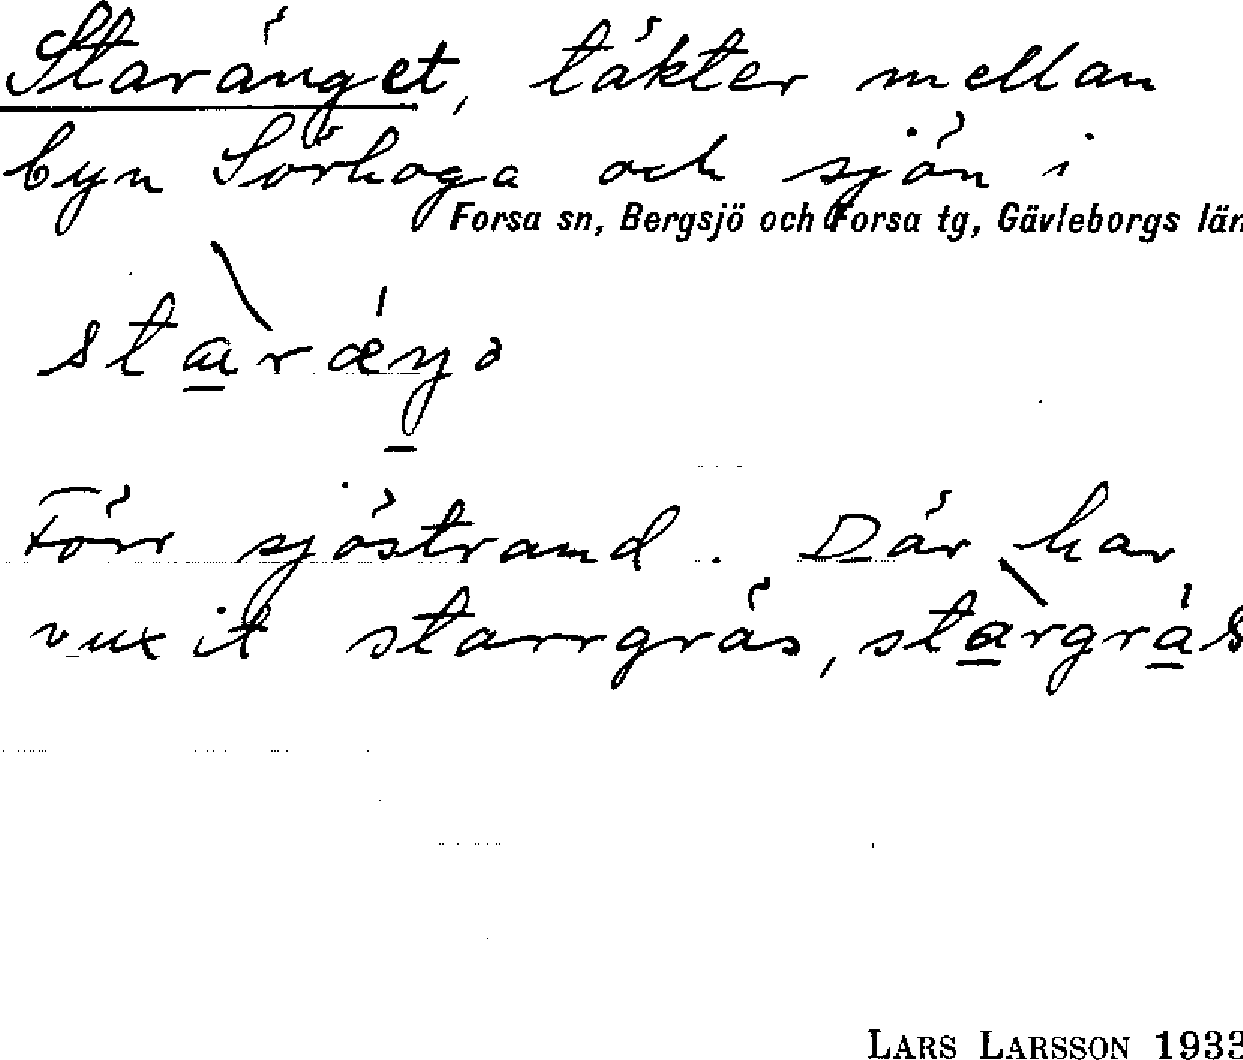 Staränget, täkter mellan
byn Sörhoga och sjön i
Forsa sn, Bergsjö och Forsa tg, Gävleborgs län
staræŋə
Förr sjöstrand. Där har
vuxit starrgräs, stargräs
LARS LARSSON 1933